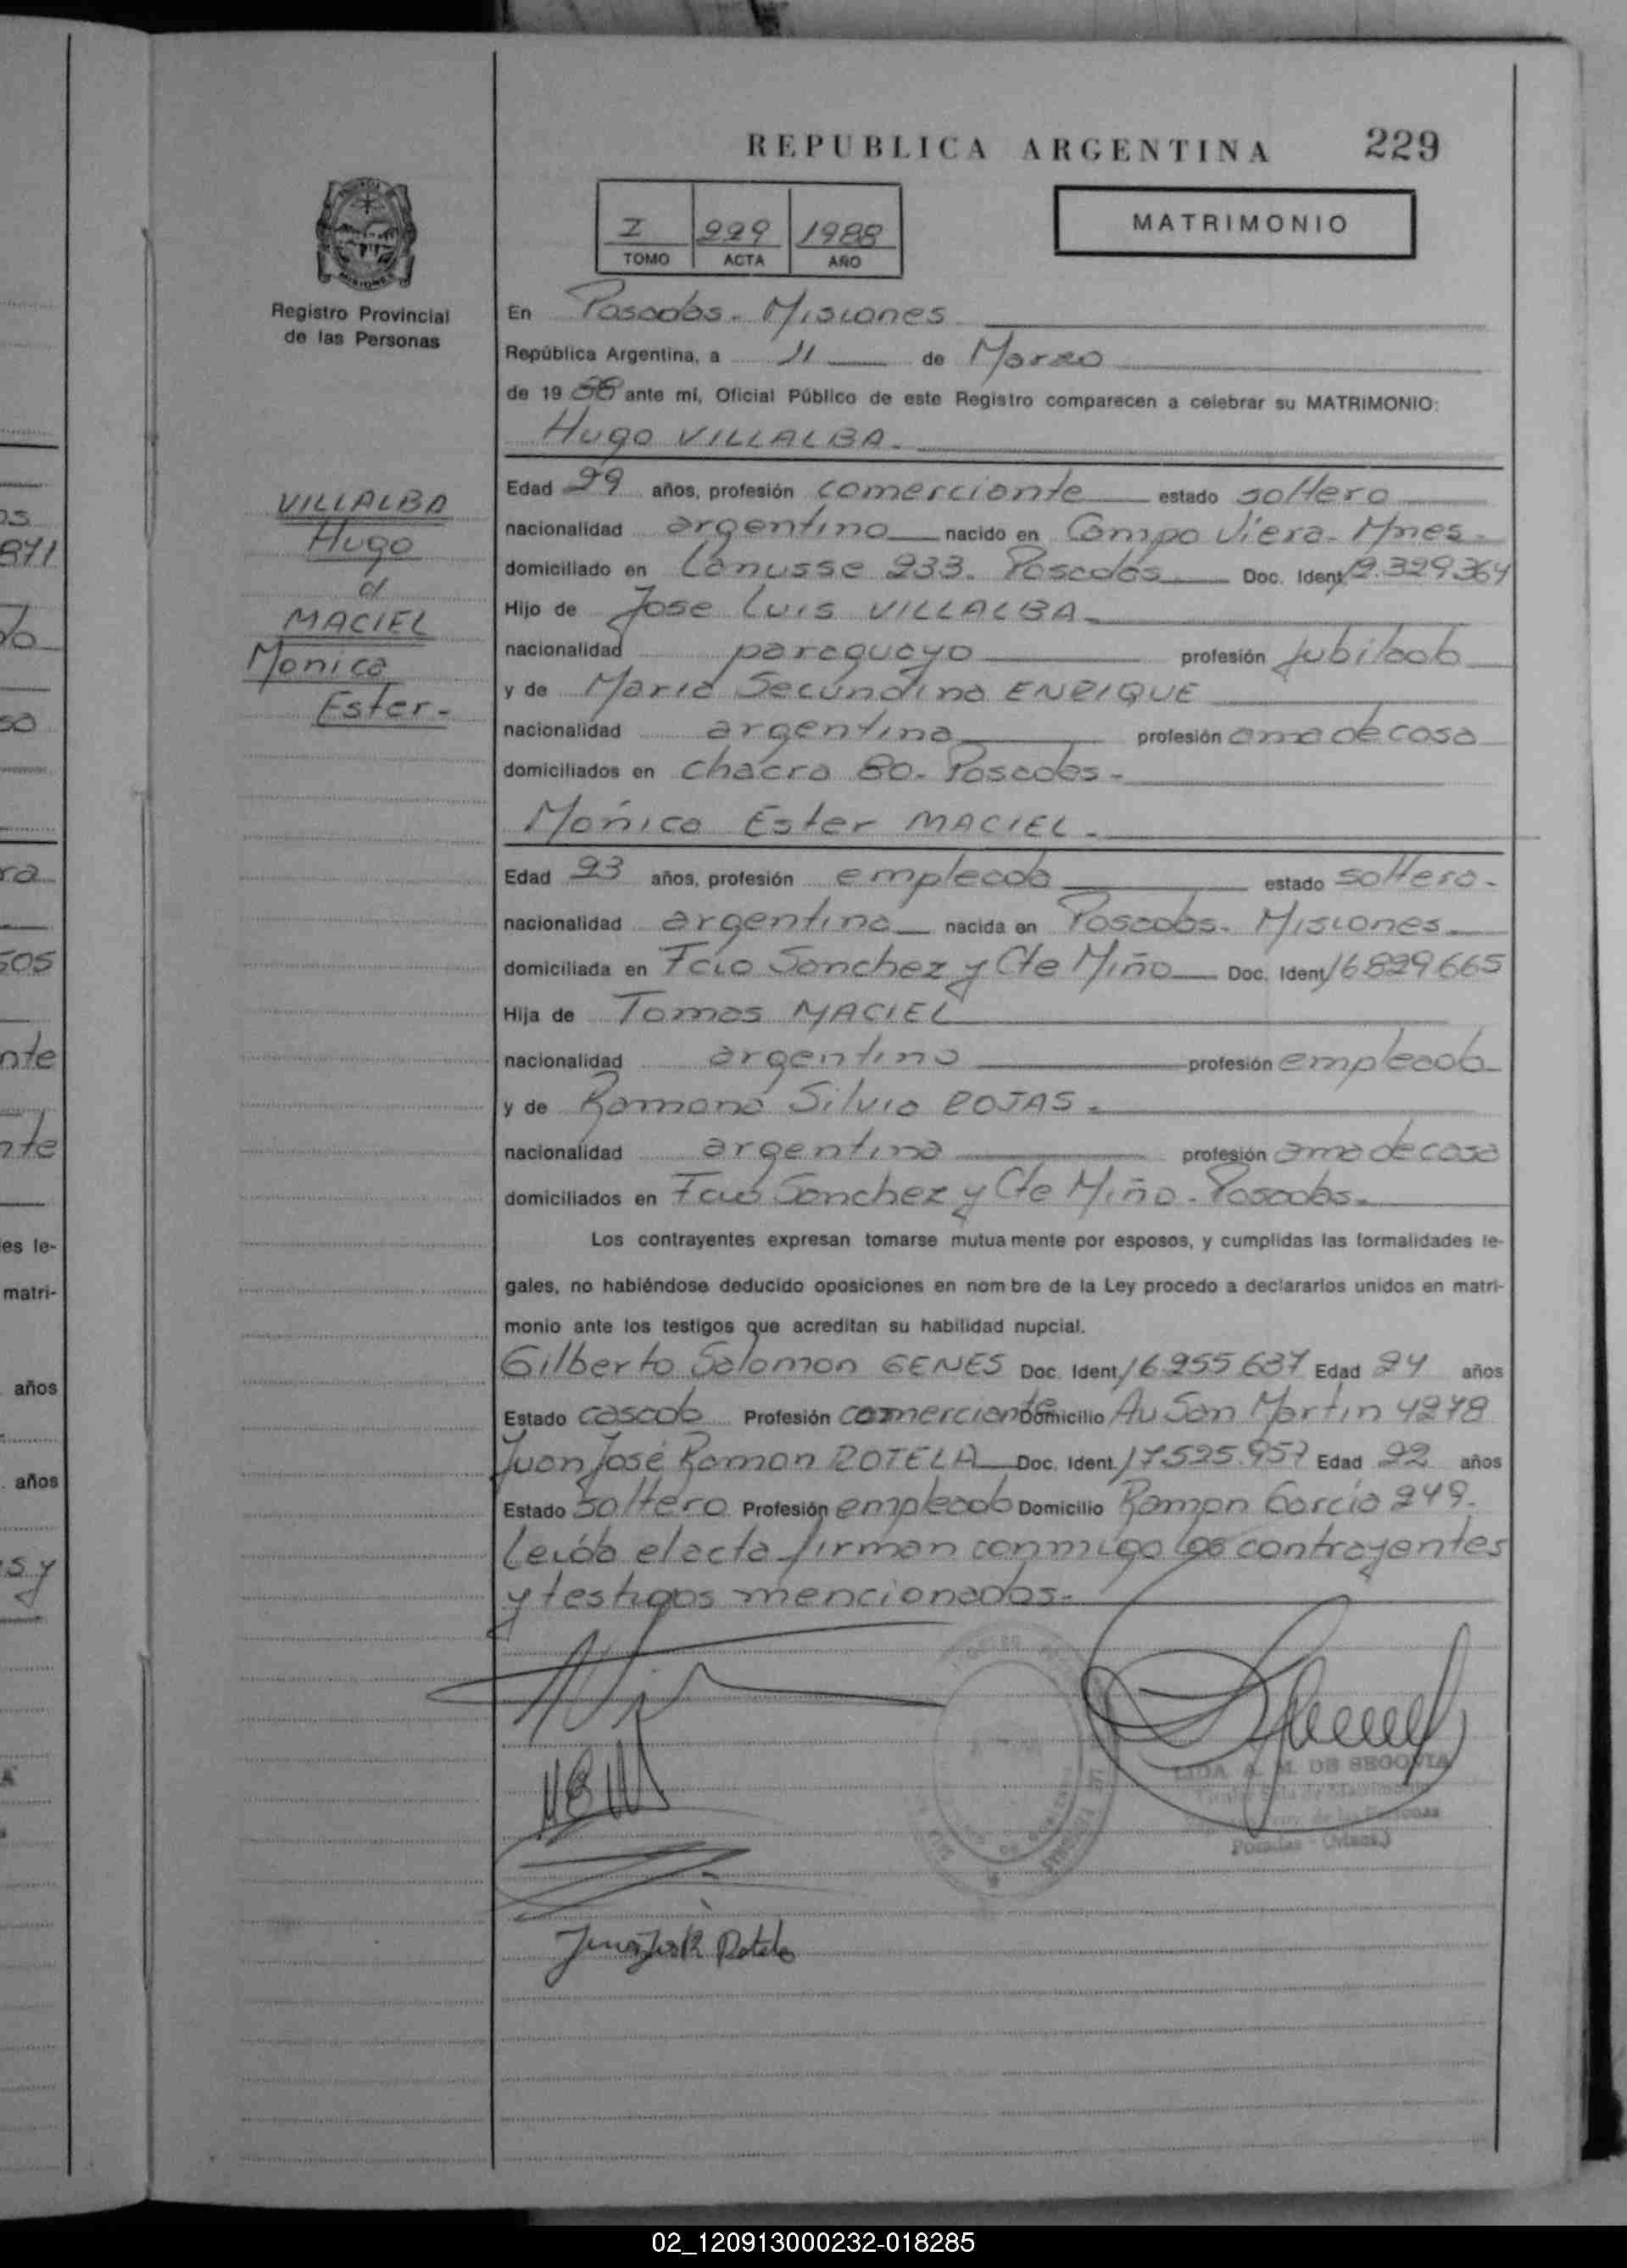 REPUBLICA ARGENTINA 229
I 229 1988
TOMO ACTA AÑO
MATRIMONIO
Registro Provincial
de las Personas
En Posadas - Misiones
República Argentina, a 11 de Marzo
de 19 88 ante mí, Oficial Público de este Registro comparecen a celebrar su MATRIMONIO:
Hugo VILLALBA -
VILLALBA
Hugo
d
MACIEL
Monica
Ester -
Edad 29 años, profesión comerciante estado soltero
nacionalidad argentino nacido en Campo Viera - Mnes -
domiciliado en Lanusse 233. Posadas Doc. Ident. 12.329.364
Hijo de Jose Luis VILLALBA -
nacionalidad paraguayo profesión Jubilado
y de Maria Secundina ENRIQUE
nacionalidad argentina profesión ama de casa
domiciliados en chacra 80 - Posadas -
Monica Ester MACIEL -
Edad 23 años, profesión empleada estado soltera -
nacionalidad argentina nacida en Posadas - Misiones
domiciliada en Fcio Sanchez y Cte Miño Doc. Ident. 16.829.665
Hija de Tomas MACIEL
nacionalidad argentino profesión empleado
y de Ramona Silvia ROJAS -
nacionalidad argentina profesión ama de casa
domiciliados en Fcio Sanchez y Cte Miño - Posadas -
Los contrayentes expresan tomarse mutuamente por esposos, y cumplidas las formalidades le-
gales, no habiéndose deducido oposiciones en nombre de la Ley procedo a declararlos unidos en matri-
monio ante los testigos que acreditan su habilidad nupcial.
Gilberto Salomon GENES Doc. Ident. 16.255.637 Edad 24 años
Estado casado Profesión comerciante Domicilio Av San Martin 4278
Juan José Ramon ROTELA Doc. Ident. 17.525.957 Edad 22 años
Estado Soltero Profesión empleado Domicilio Ramon Garcia 249.
Leida el acta firman conmigo los contrayentes
y testigos mencionados -
LIDA A. M. DE SEGOVIA
de las Personas
Posadas - (Mnes.)
Juan José R Rotela
02_120913000232-018285